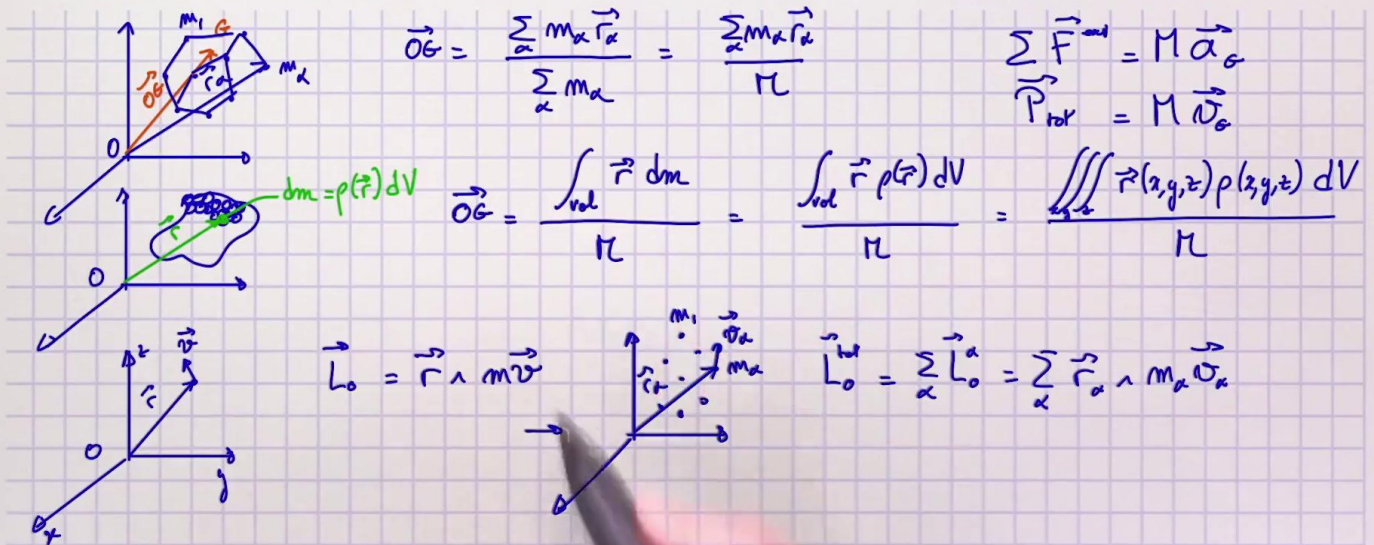 m₁ G m_α \vec{OG} \vec{r_α} O
\vec{OG} = \frac{\sum_α m_α \vec{r_α}}{\sum_α m_α} = \frac{\sum_α m_α \vec{r_α}}{M}
\sum \vec{F}^{ext} = M \vec{a}_G
\vec{P}_{tot} = M \vec{v}_G
dm = ρ(\vec{r}) dV
\vec{r} O
\vec{OG} = \frac{\int_{vol} \vec{r} dm}{M} = \frac{\int_{vol} \vec{r} ρ(\vec{r}) dV}{M} = \frac{\iiint \vec{r}(x,y,z) ρ(x,y,z) dV}{M}
z \vec{v} \vec{r} O y x
\vec{L}_O = \vec{r} ∧ m\vec{v}
m₁ \vec{v_α} m_α \vec{r_α}
\vec{L}_O^{tot} = \sum_α \vec{L}_O^α = \sum_α \vec{r}_α ∧ m_α \vec{v}_α